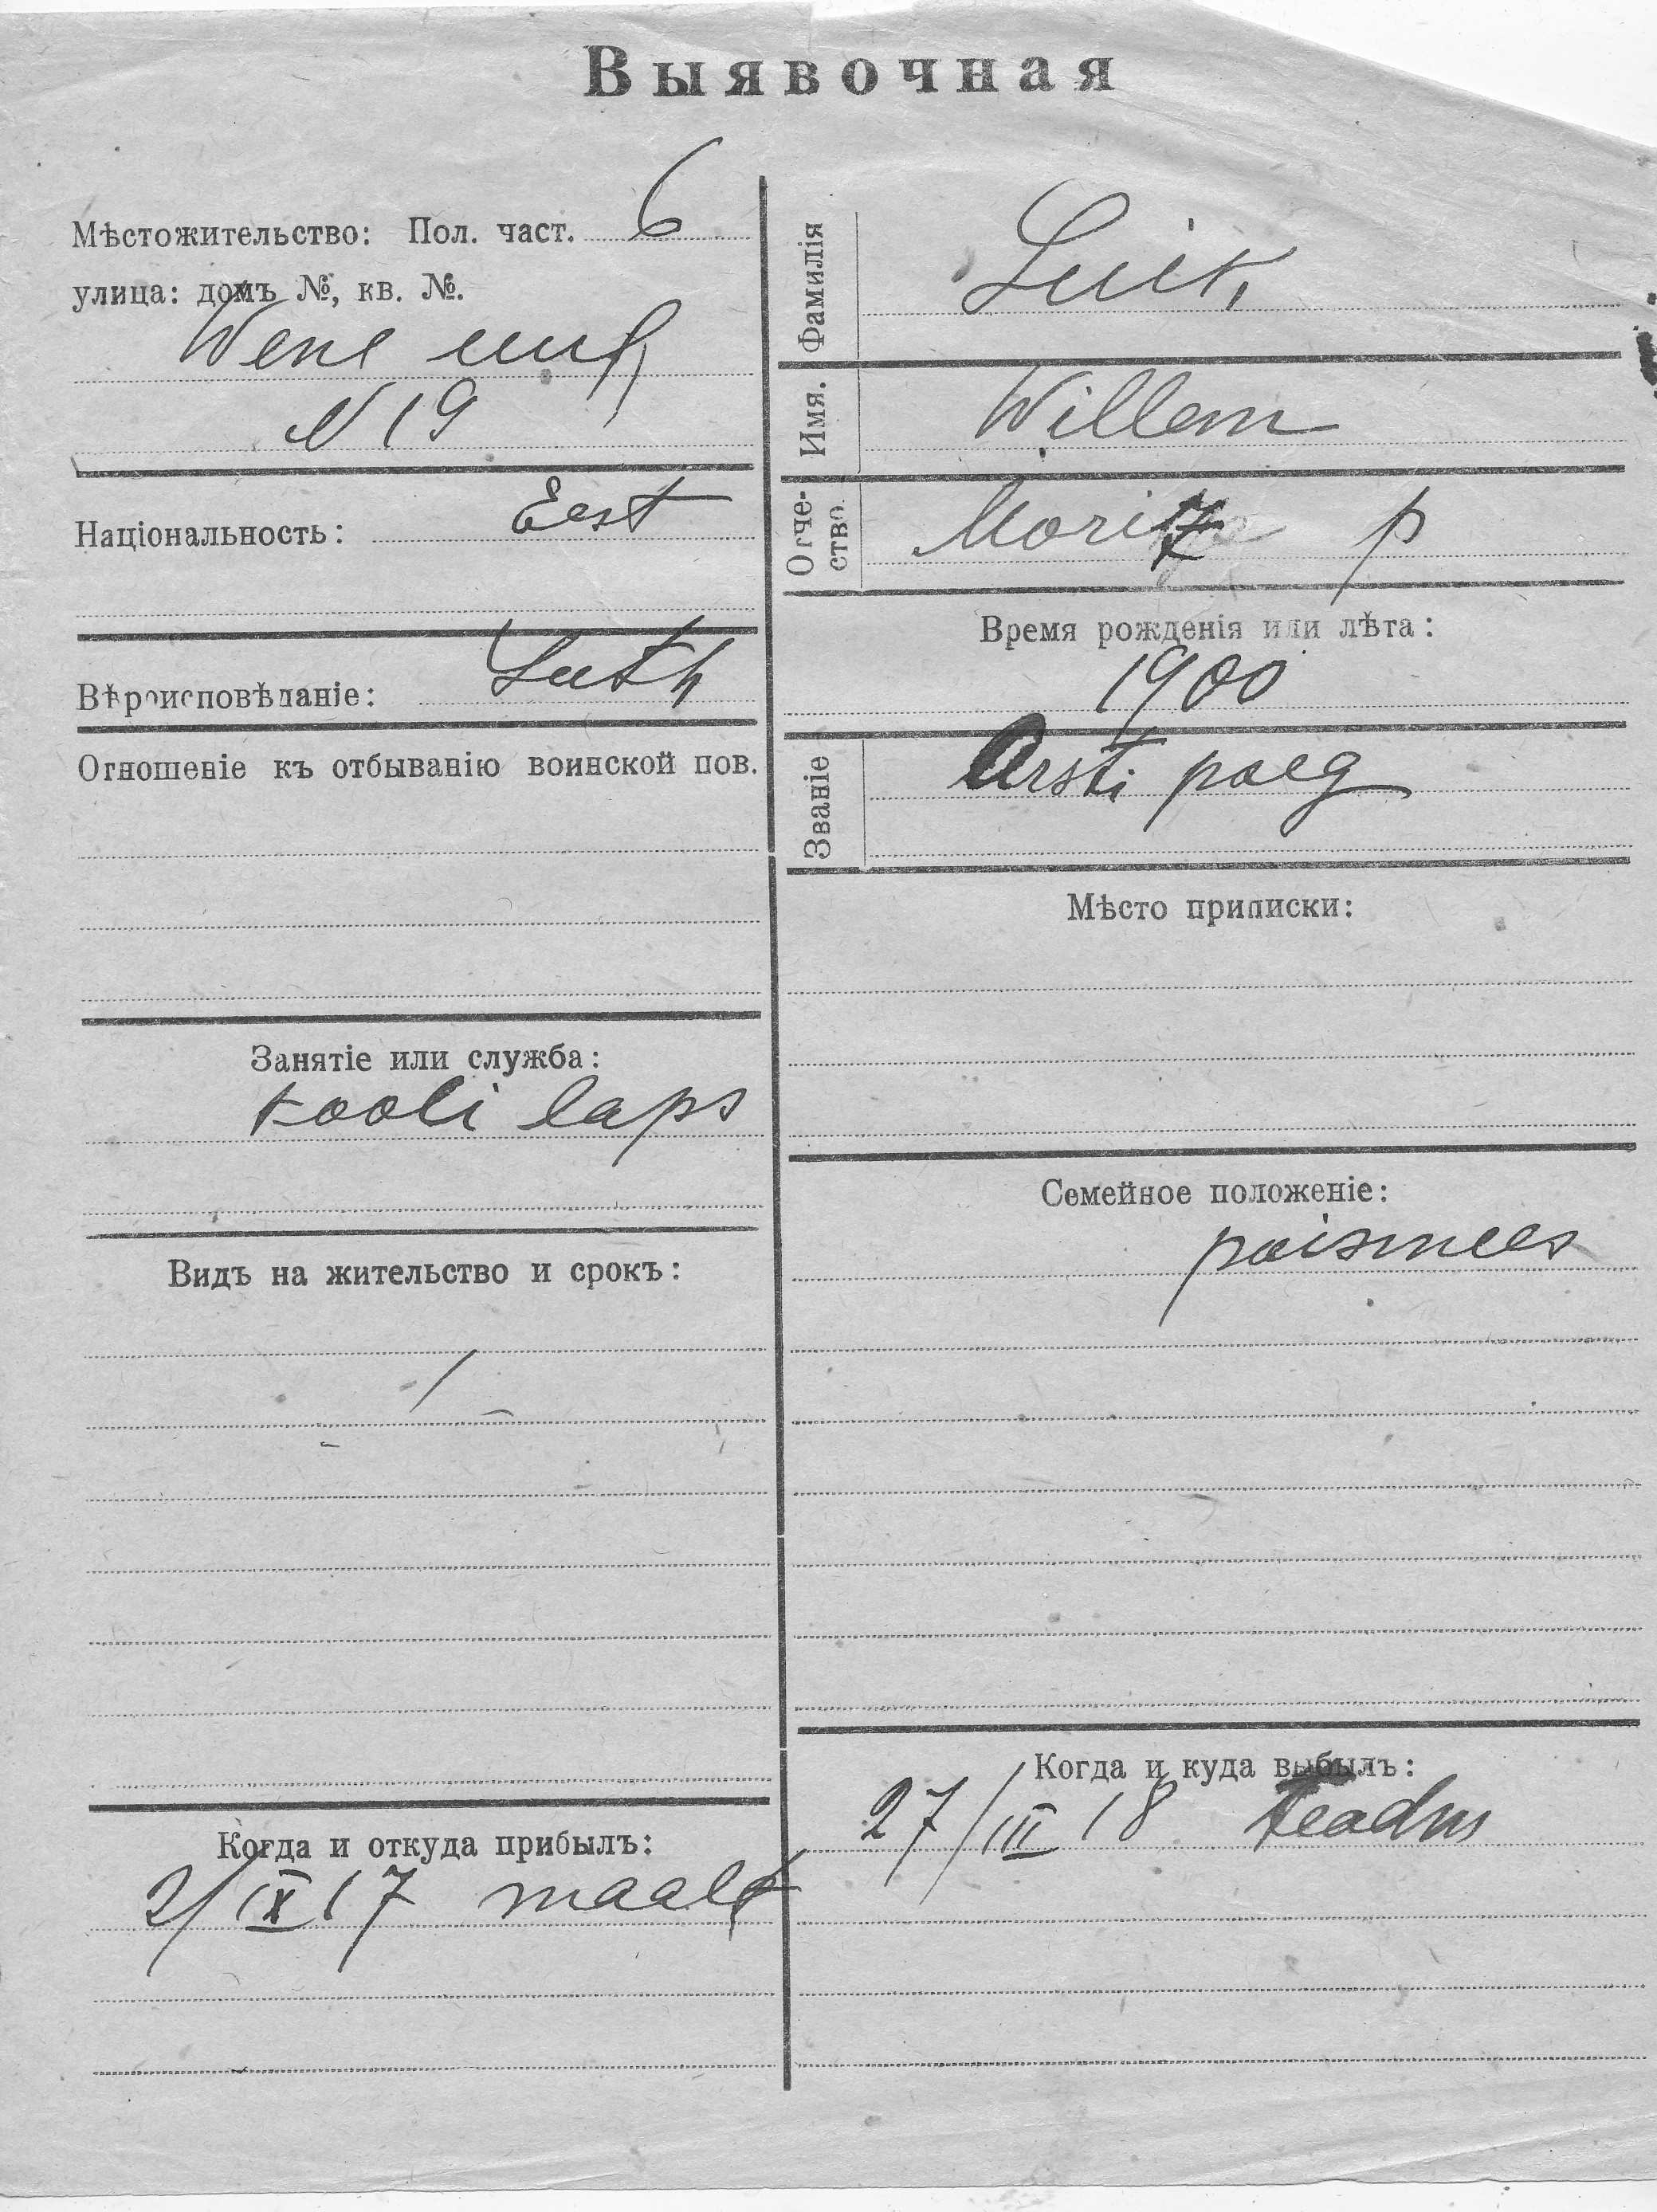 Выявочная
Мѣстожительство: Пол. част. 6
улица: домъ №, кв. №.
Wene
N 19
Національность: Eest
Вѣроисповѣданіе: Luth
Отношеніе къ отбыванію воинской пов.
Занятіе или служба:
kooli laps
Видъ на жительство и срокъ:
Когда и откуда прибылъ:
2/IX 17 maalt
Фамилія Luik,
Имя. Willem
Отче-
ство. Moritz p
Время рожденія или лѣта:
1900
Званіе Arsti poeg
Мѣсто приписки:
Семейное положеніе:
poismees
Когда и куда выбылъ:
27/III 18 teadm